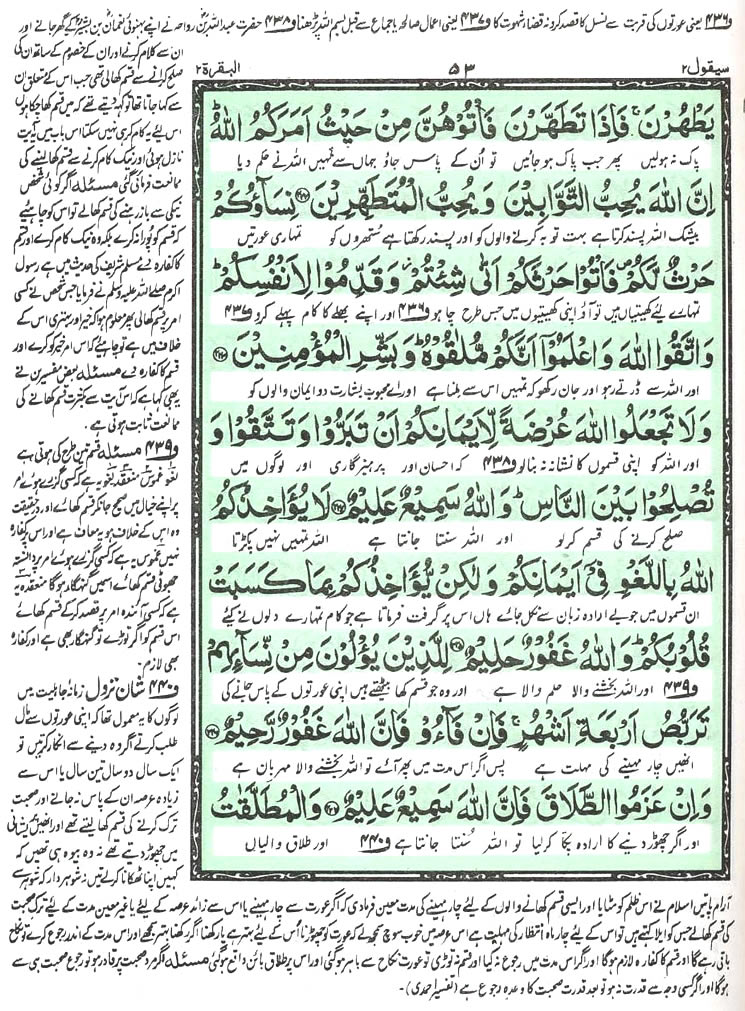 و۴۳۶ یعنی عورتوں کی قربت سے نسل کا قصد کرو نہ قضاء شہوت کا و۴۳۷ یعنی اعمال صالحہ یا جماع سے قبل بسم اللہ پڑھنا و۴۳۸ حضرت عبداللہ بن رواحہ نے اپنے بہنوئی نعمان بن بشیر کے گھر جانے اور
سیقول ۲
۵۳
البقرۃ ۲
یَطْهُرْنَ ۚ فَاِذَا تَطَهَّرْنَ فَاْتُوْهُنَّ مِنْ حَیْثُ اَمَرَكُمُ اللّٰهُ ؕ
پاک نہ ہولیں پھر جب پاک ہو جائیں تو اُن کے پاس جاؤ جہاں سے تمہیں اللہ نے حکم دیا
اِنَّ اللّٰهَ یُحِبُّ التَّوَّابِیْنَ وَ یُحِبُّ الْمُتَطَهِّرِیْنَ ۝۲۲۲ نِسَآؤُكُمْ
بیشک اللہ پسند کرتا ہے بہت توبہ کرنے والوں کو اور پسند رکھتا ہے ستھروں کو تمہاری عورتیں
حَرْثٌ لَّكُمْ ۪ فَاْتُوْا حَرْثَكُمْ اَنّٰى شِئْتُمْ ؗ وَ قَدِّمُوْا لِاَنْفُسِكُمْ ؕ
تمہارے لئے کھیتیاں ہیں تو آؤ اپنی کھیتیوں میں جس طرح چاہو و۴۳۶ اور اپنے بھلے کا کام پہلے کرو و۴۳۷
وَ اتَّقُوا اللّٰهَ وَ اعْلَمُوْۤا اَنَّكُمْ مُّلٰقُوْهُ ؕ وَ بَشِّرِ الْمُؤْمِنِیْنَ ۝۲۲۳
اور اللہ سے ڈرتے رہو اور جان رکھو کہ تمہیں اس سے ملنا ہے اور اے محبوب بشارت دو ایمان والوں کو
وَ لَا تَجْعَلُوا اللّٰهَ عُرْضَةً لِّاَیْمَانِكُمْ اَنْ تَبَرُّوْا وَ تَتَّقُوْا وَ
اور اللہ کو اپنی قسموں کا نشانہ نہ بنالو و۴۳۸ کہ احسان اور پرہیزگاری اور لوگوں میں
تُصْلِحُوْا بَیْنَ النَّاسِ ؕ وَ اللّٰهُ سَمِیْعٌ عَلِیْمٌ ۝۲۲۴ لَا یُؤَاخِذُكُمُ
صلح کرنے کی قسم کرلو اور اللہ سنتا جانتا ہے اللہ تمہیں نہیں پکڑتا
اللّٰهُ بِاللَّغْوِ فِیْۤ اَیْمَانِكُمْ وَ لٰكِنْ یُّؤَاخِذُكُمْ بِمَا كَسَبَتْ
ان قسموں میں جو بے ارادہ زبان سے نکل جائے ہاں اس پر گرفت فرماتا ہے جو کام تمہارے دلوں نے کیئے
قُلُوْبُكُمْ ؕ وَ اللّٰهُ غَفُوْرٌ حَلِیْمٌ ۝۲۲۵ لِلَّذِیْنَ یُؤْلُوْنَ مِنْ نِّسَآىٕهِمْ
و۴۳۹ اور اللہ بخشنے والا حلم والا ہے اور وہ جو قسم کھا بیٹھتے ہیں اپنی عورتوں کے پاس جانے کی
تَرَبُّصُ اَرْبَعَةِ اَشْهُرٍ ۚ فَاِنْ فَآءُوْ فَاِنَّ اللّٰهَ غَفُوْرٌ رَّحِیْمٌ ۝۲۲۶
انھیں چار مہینے کی مہلت ہے پس اگر اس مدت میں پھر آئے تو اللہ بخشنے والا مہربان ہے
وَ اِنْ عَزَمُوا الطَّلَاقَ فَاِنَّ اللّٰهَ سَمِیْعٌ عَلِیْمٌ ۝۲۲۷ وَ الْمُطَلَّقٰتُ
اور اگر چھوڑ دینے کا ارادہ پکا کرلیا تو اللہ سُنتا جانتا ہے و۴۴۰ اور طلاق والیاں
ان سے کلام کرنے اور ان کے خصوم کے ساتھ ان کی
صلح کرانے سے قسم کھالی تھی جب اس کے متعلق ان
سے کہا جاتا تھا تو کہہ دیتے تھے کہ میں قسم کھا چکا ہوں
اس لیے یہ کام کر ہی نہیں سکتا اس باب میں یہ آیت
نازل ہوئی اور نیک کام کرنے سے قسم کھا لینے کی
ممانعت فرمائی گئی مسئلہ اگر کوئی شخص
نیکی سے باز رہنے کی قسم کھالے تو اس کو چاہیئے
کہ قسم کو پورا نہ کرے بلکہ وہ نیک کام کرے اور قسم
کا کفارہ دے مسلم شریف کی حدیث میں ہے رسول
اکرم صلے اللہ علیہ وسلم نے فرمایا جس شخص نے کسی
امر پر قسم کھالی پھر معلوم ہوا کہ خیر اور بہتری اس کے
خلاف میں ہے تو چاہئے کہ اس امر خیر کو کرے اور
قسم کا کفارہ دے مسئلہ بعض مفسرین نے
یہ بھی کہا ہے کہ اس آیت سے بکثرت قسم کھانے کی
ممانعت ثابت ہوتی ہے۔
و۴۳۹ مسئلہ قسم تین طرح کی ہوتی ہے
لغو غموس منعقدہ لغو یہ ہے کہ کسی گزرے ہوئے امر
پر اپنے خیال میں صحیح جان کر قسم کھائے اور درحقیقت
وہ اس کے خلاف ہو یہ معاف ہے اور اس پر کفارہ
نہیں غموس یہ ہے کہ کسی گزرے ہوئے امر پر دانستہ
جھوٹی قسم کھائے اسمیں گنہگار ہوگا منعقدہ یہ
ہے کہ کسی آئندہ امر پر قصد کرکے قسم کھائے
اس قسم کو اگر توڑے تو گنہگار بھی ہے اور کفارہ
بھی لازم۔
و۴۴۰ شان نزول زمانۂ جاہلیت میں
لوگوں کا یہ معمول تھا کہ اپنی عورتوں سے مال
طلب کرتے اگر وہ دینے سے انکار کرتیں تو
ایک سال دو سال تین سال یا اس سے
زیادہ عرصہ ان کے پاس نہ جانے اور صحبت
ترک کرنے کی قسم کھا لیتے تھے اور انھیں پریشانی
میں چھوڑ دیتے تھے نہ وہ بیوہ ہی تھیں کہ
کہیں اپنا ٹھکانا کرلیتیں نہ شوہر دار کہ شوہر سے
آرام پاتیں اسلام نے اس ظلم کو مٹایا اور ایسی قسم کھانے والوں کے لئے چار مہینے کی مدت معین فرمادی کہ اگر عورت سے چار مہینے یا اس سے زائد عرصہ کے لئے یا غیر معین مدت کے لئے ترک صحبت
کی قسم کھالے جس کو ایلا کہتے ہیں تو اس کے لئے چار ماہ انتظار کی مہلت ہے اس عرصہ میں خوب سوچ سمجھ لے کہ عورت کو چھوڑنا اُس کے لئے بہتر ہے یا رکھنا اگر رکھنا بہتر سمجھے اور اس مدت کے اندر رجوع کرے تو نکاح
باقی رہے گا اور قسم کا کفارہ لازم ہوگا اور اگر اس مدت میں رجوع نہ کیا اور قسم نہ توڑی تو عورت نکاح سے باہر ہوگئی اور اس پر طلاق بائن واقع ہوگئی مسئلہ اگر مرد صحبت پر قادر ہو تو رجوع صحبت ہی سے
ہوگا اور اگر کسی وجہ سے قدرت نہ ہو تو بعد قدرت صحبت کا وعدہ رجوع ہے (تفسیر احمدی)۔